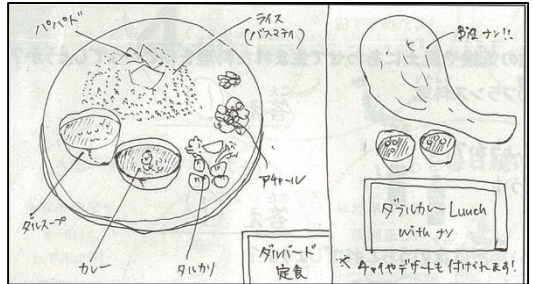 パパド
ライス
(バスマティ)
アチャール
ダルスープ
カレー
タルカリ
ダルバード
定食
ナン!!
ダブルカレー Lunch
with ナン
※ チャイやデザートも付けられます!